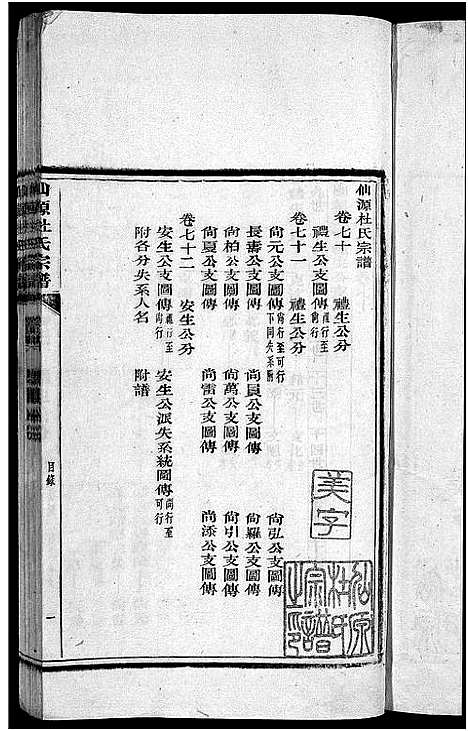 仙源杜氏宗譜
卷七十　禮生公分
禮生公支圖傳禮行至尙行
卷七十一　禮生公分
尙元公支圖傳尙行至可行下同失系附　尙弘公支圖傳
長壽公支圖傳　尙員公支圖傳　尙羅公支圖傳
尙柏公支圖傳　尙萬公支圖傳　尙引公支圖傳
尙夏公支圖傳　尙雷公支圖傳　尙添公支圖傳
卷七十二　安生公分
安生公支圖傳禮行至尙行　安生公派失系統圖傳尙行至可行
附各分失系人名　附譜
美字
仙源杜氏宗譜之印
仙源杜氏宗譜
目錄
一